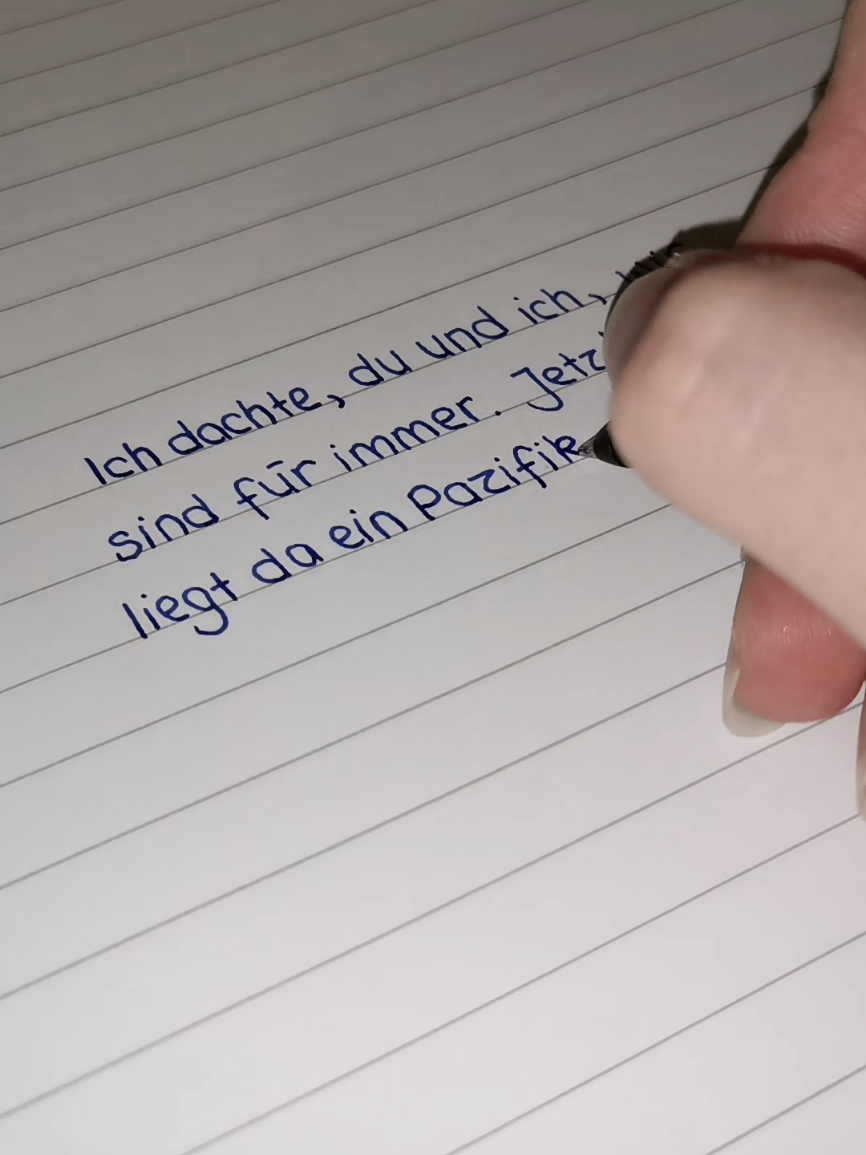 Ich dachte, du und ich, wir
sind für immer. Jetz
liegt da ein Pazifik